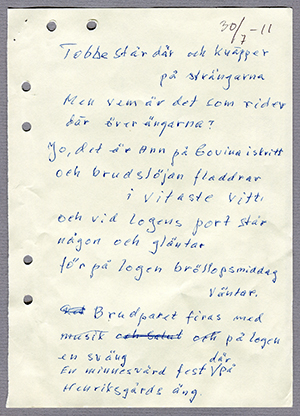 30/7-11
Tobbe står där och knäpper
på strängarna
Men vem är det som rider
där över ängarna?
Jo, det är Ann på Bovina i skritt
och brudslöjan fladdrar
i vitaste vitt
och vid logens port står
någon och gläntar
för på logen bröllopsmiddag
väntar.
Brudparet firas med
musik och på logen
en sväng
En minnesvärd fest där på
Henriksgårds äng.